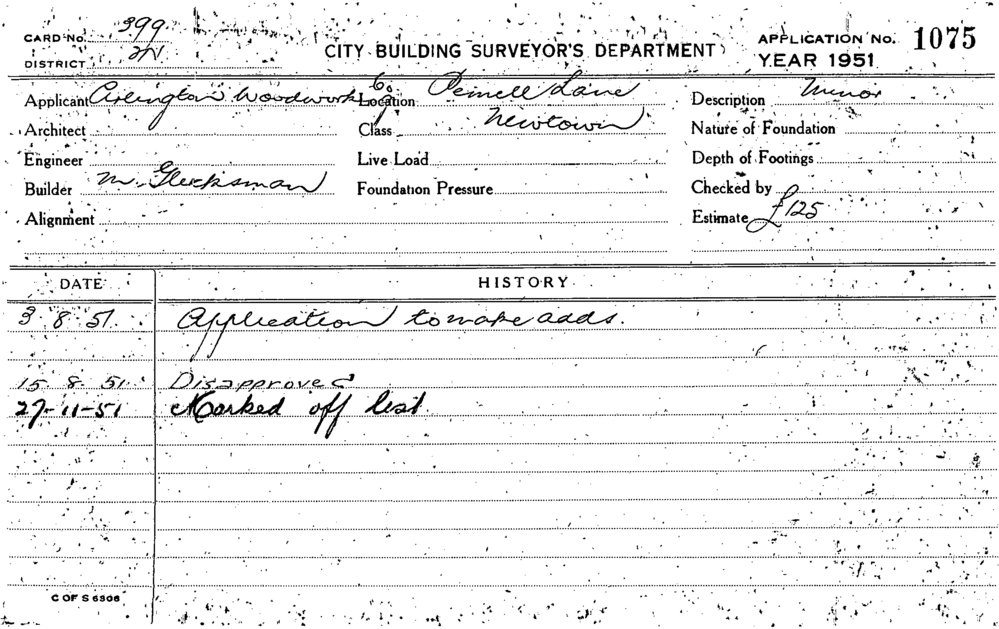 CARD No. 399
DISTRICT 2N
CITY BUILDING SURVEYOR'S DEPARTMENT
APPLICATION No. 1075
YEAR 1951
Applicant Arlington Woodwork Co Location Pennell Lane Description Minor
Architect Class Newtown Nature of Foundation
Engineer Live Load Depth of Footings
Builder M. Glucksman Foundation Pressure Checked by
Alignment Estimate £125
DATE HISTORY
3 8 51 Application to make adds.
15 8 51 Disapproved
27-11-51 Marked off list
C OF S 6306